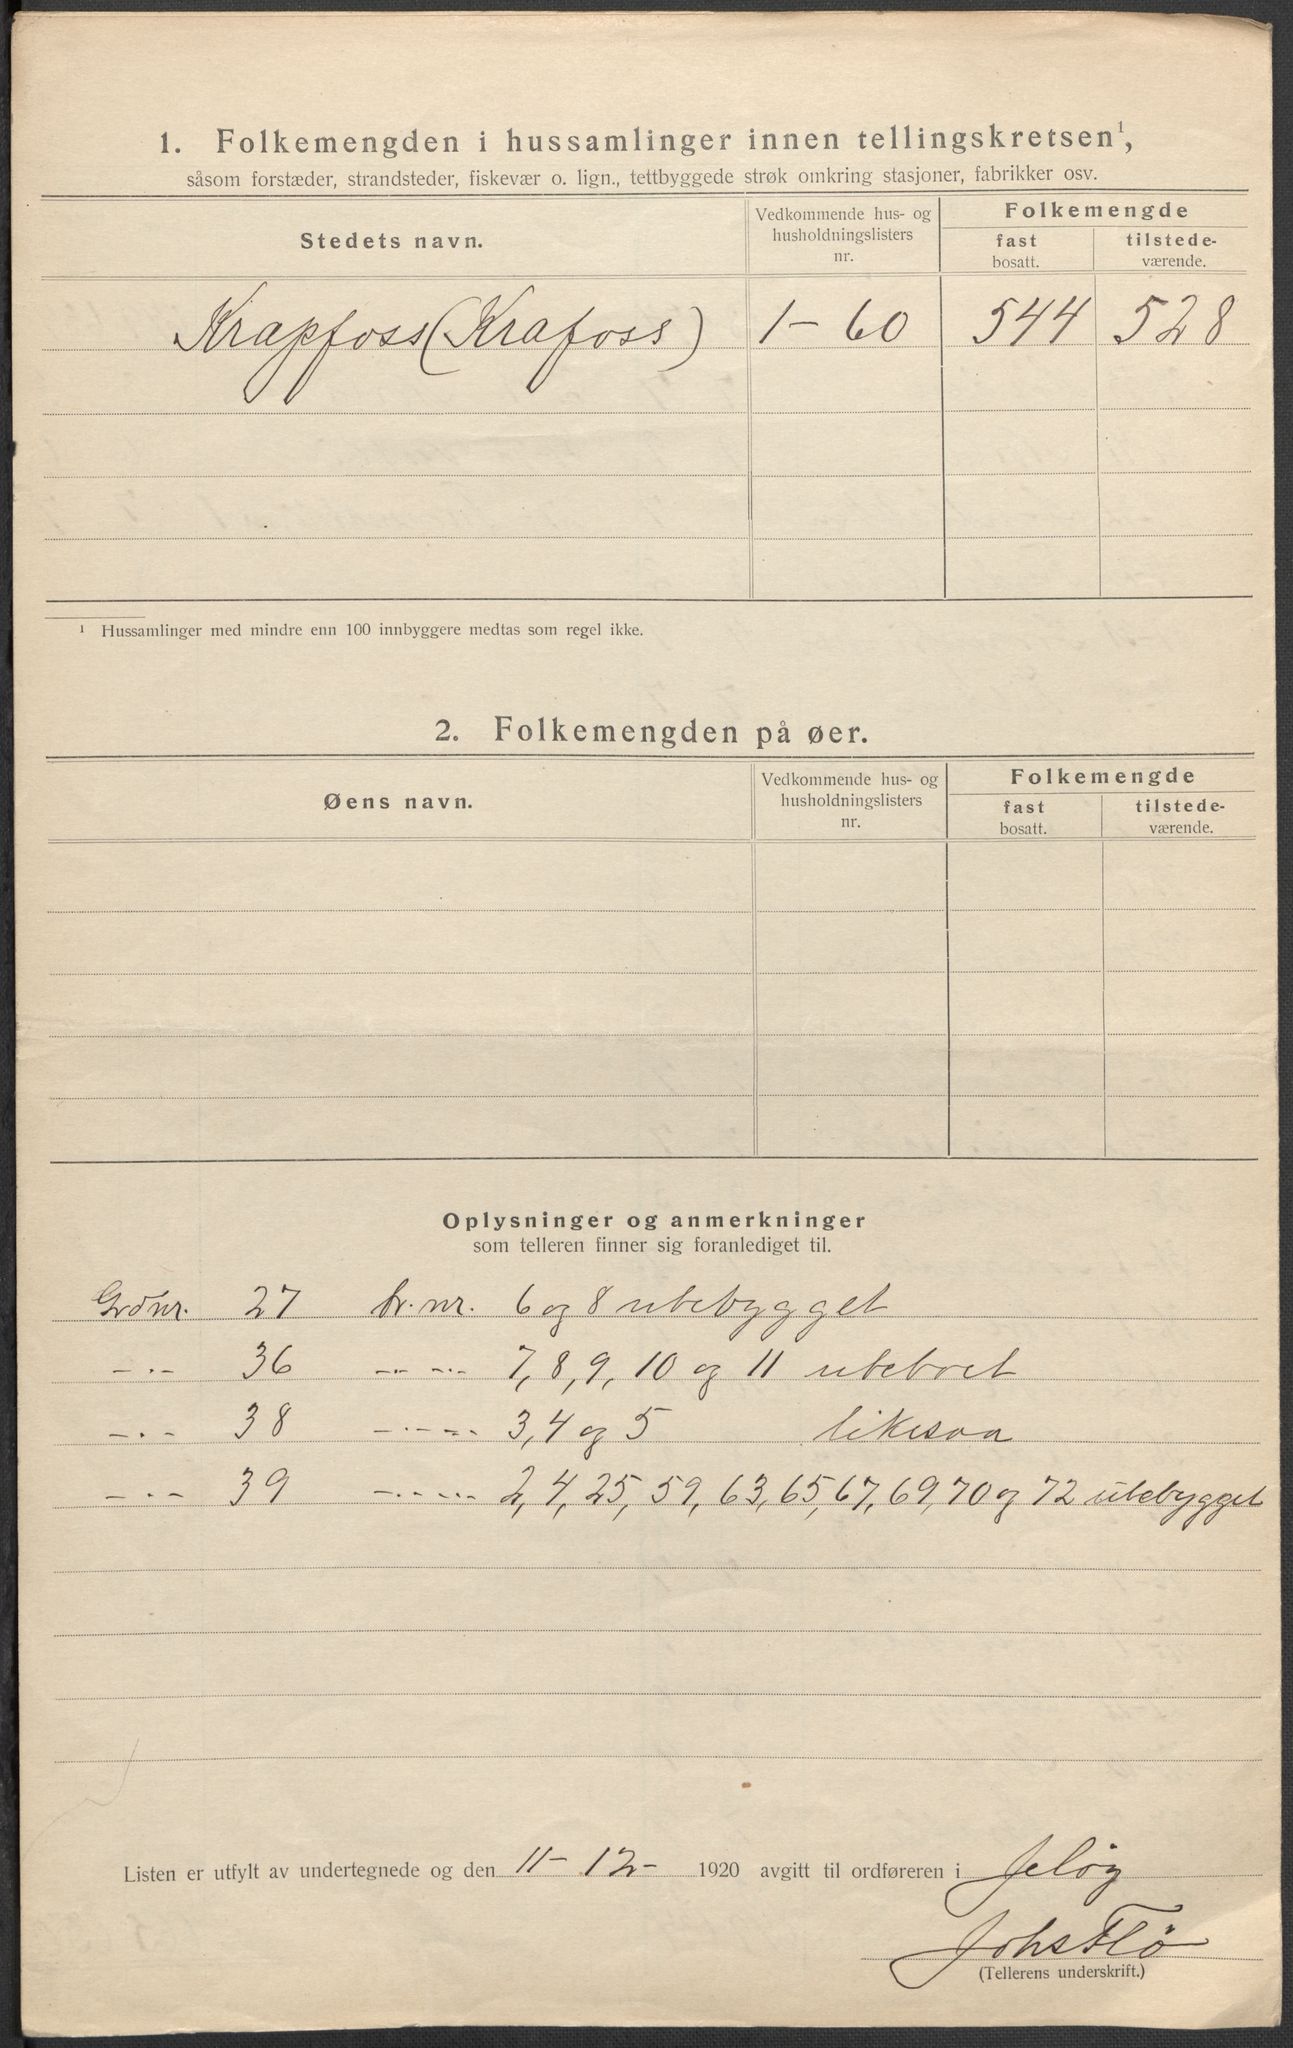 1. Folkemengden i hussamlinger innen tellingskretsen¹,
såsom forstæder, strandsteder, fiskevær o. lign., tettbyggede strøk omkring stasjoner, fabrikker osv.
Stedets navn.
Vedkommende hus- og husholdningslisters nr.
Folkemengde
fast bosatt.
tilstede-værende.
Krapfoss (Krafoss) 1 - 60 544 528
¹ Hussamlinger med mindre enn 100 innbyggere medtas som regel ikke.
2. Folkemengden på øer.
Øens navn.
Vedkommende hus- og husholdningslisters nr.
Folkemengde
fast bosatt.
tilstede-værende.
Oplysninger og anmerkninger
som telleren finner sig foranlediget til.
Grdnr. 27 br. nr. 6 og 8 ubebygget
-·- 36 -·-·- 7, 8, 9, 10 og 11 ubeboet
-·- 38 -·-·- 3, 4 og 5 likesaa
-·- 39 -·-·- 2, 4, 25, 59, 63, 65, 67, 69, 70 og 72 ubebygget
Listen er utfylt av undertegnede og den 11-12- 1920 avgitt til ordføreren i Jeløy
Johs Flö
(Tellerens underskrift.)